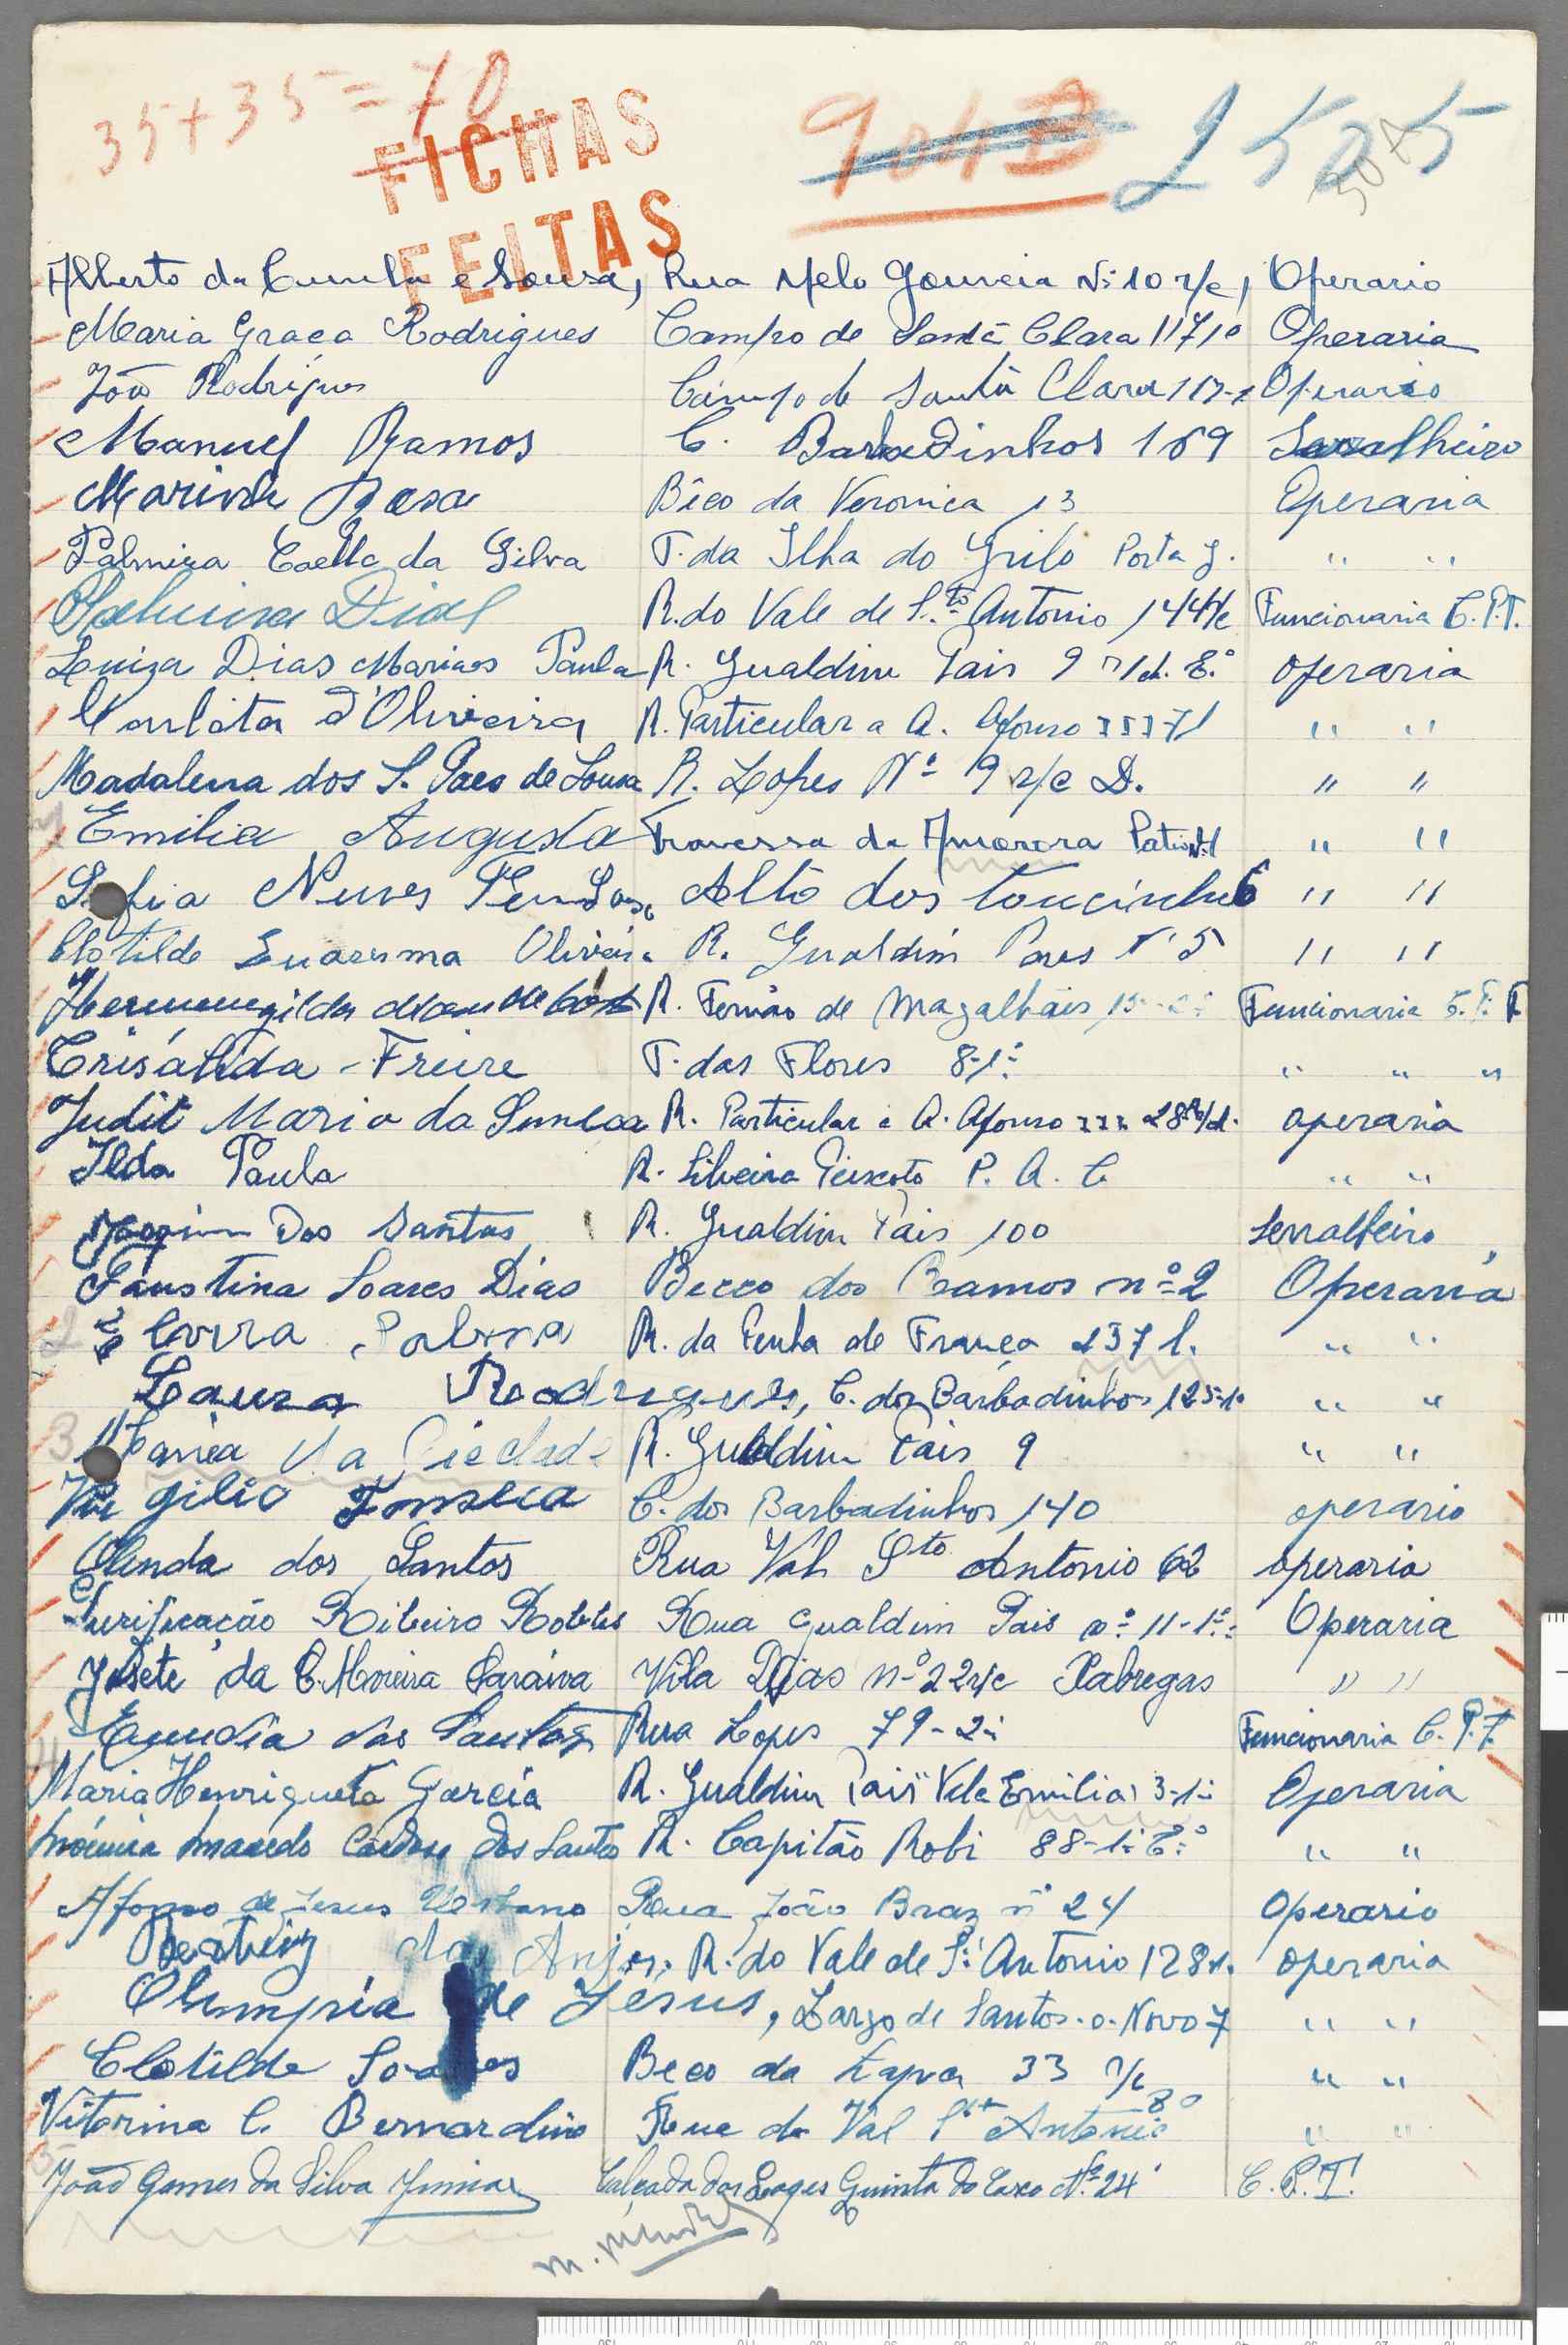 35+35=70
FICHAS
FEITAS
904B 2505
Alberto da Cunha e Sousa, Rua Melo Gouveia Nº 10 r/c, Operario
Maria Graça Rodrigues Campo de Santa Clara 117 1º Operaria
João Rodrigues Campo de Santa Clara 117-1 Operario
Manuel Ramos C. Barbadinhos 169 Serralheiro
Marina Rosa Bêco da Veronica 13 Operaria
Palmira Coelho da Silva T. da Ilha do Grilo Porta J. " "
Palmira Dias R. do Vale de S.to Antonio 144 r/c Funcionaria C.P.T.
Luiza Dias Paula R. Gualdim Pais 9 r/ch. E.º operaria
Carlota d'Oliveira R. Particular a A. Afonso III 37 1 " "
Madalena dos S. Paes de Sousa R. Lopes Nº 19 r/c D. " "
Emilia Augusta Travessa da Amorora Patio Nº 1 " "
Sofia Neves Alto dos Toucinheiros 6 " "
Clotilde Quaresma Oliveira R. Gualdim Paes Nº 5 " "
Hermenegilda R. Fernão de Magalhães 15-2º Funcionaria C.P.T.
Crisálida Freire T. das Flores 8-1º " " "
Judit Maria da R. Particular á A. Afonso III 28 R/d. operaria
Ilda Paula R. Silveira Peixoto P. A. C " "
Joaquim Dos Santos R. Gualdim Pais 100 Serralheiro
Faustina Soares Dias Becco dos Ramos nº 2 Operaria
Elvira Palma R. da Penha de França 237 l. " "
Laura Rodrigues, C. dos Barbadinhos 125-1º " "
Maria da Piedade R. Gualdim Pais 9 " "
Virgilio Fonseca C. dos Barbadinhos 140 operario
Olinda dos Santos Rua Val Sto Antonio 62 operaria
Purificação Ribeiro Robles Rua Gualdim Pais nº 11-1º Operaria
Josete da C. Moreira Saraiva Vila Dias nº 22 r/c Xabregas " "
dos Santos Rua Lopes 79-2º Funcionaria C.P.T.
Maria Henriqueta Garcia R. Gualdim Pais Vila Emilia 3-1º Operaria
Noémia Macedo Cardoso dos Santos R. Capitão Robi 88-1º E.º " "
Afonso de Jesus Rua João Braz nº 24 Operario
Beatriz dos Anjos, R. do Vale de S.to Antonio 128 operaria
Olimpia de Jesus, Largo de Santos-o-Novo 7 " "
Clotilde Soares Beco da Lapa 33 r/c " "
Vitorina C. Bernardino Rua do Val Sto Antonio 80 " "
João Gomes da Silva Junior Calçada das Lages Quinta do Coxo Nº 24 C.P.T.